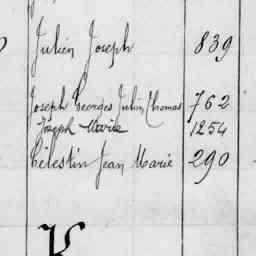 Julien Joseph 839
Joseph Georges Julien Thomas 762
Joseph Marie 1254
Célestin Jean Marie 290
K